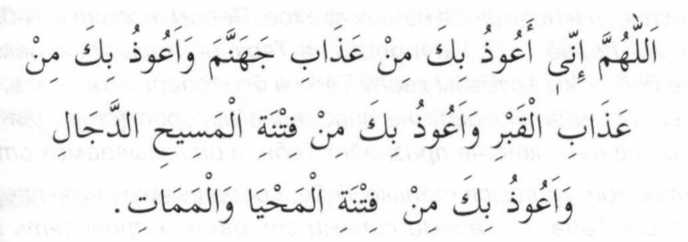 اَللّٰهُمَّ إِنِّي أَعُوذُ بِكَ مِنْ عَذَابِ جَهَنَّمَ وَاَعُوذُ بِكَ مِنْ
عَذَابِ الْقَبْرِ وَاَعُوذُ بِكَ مِنْ فِتْنَةِ الْمَسِيحِ الدَّجَّالِ
وَاَعُوذُ بِكَ مِنْ فِتْنَةِ الْمَحْيَا وَالْمَمَاتِ.